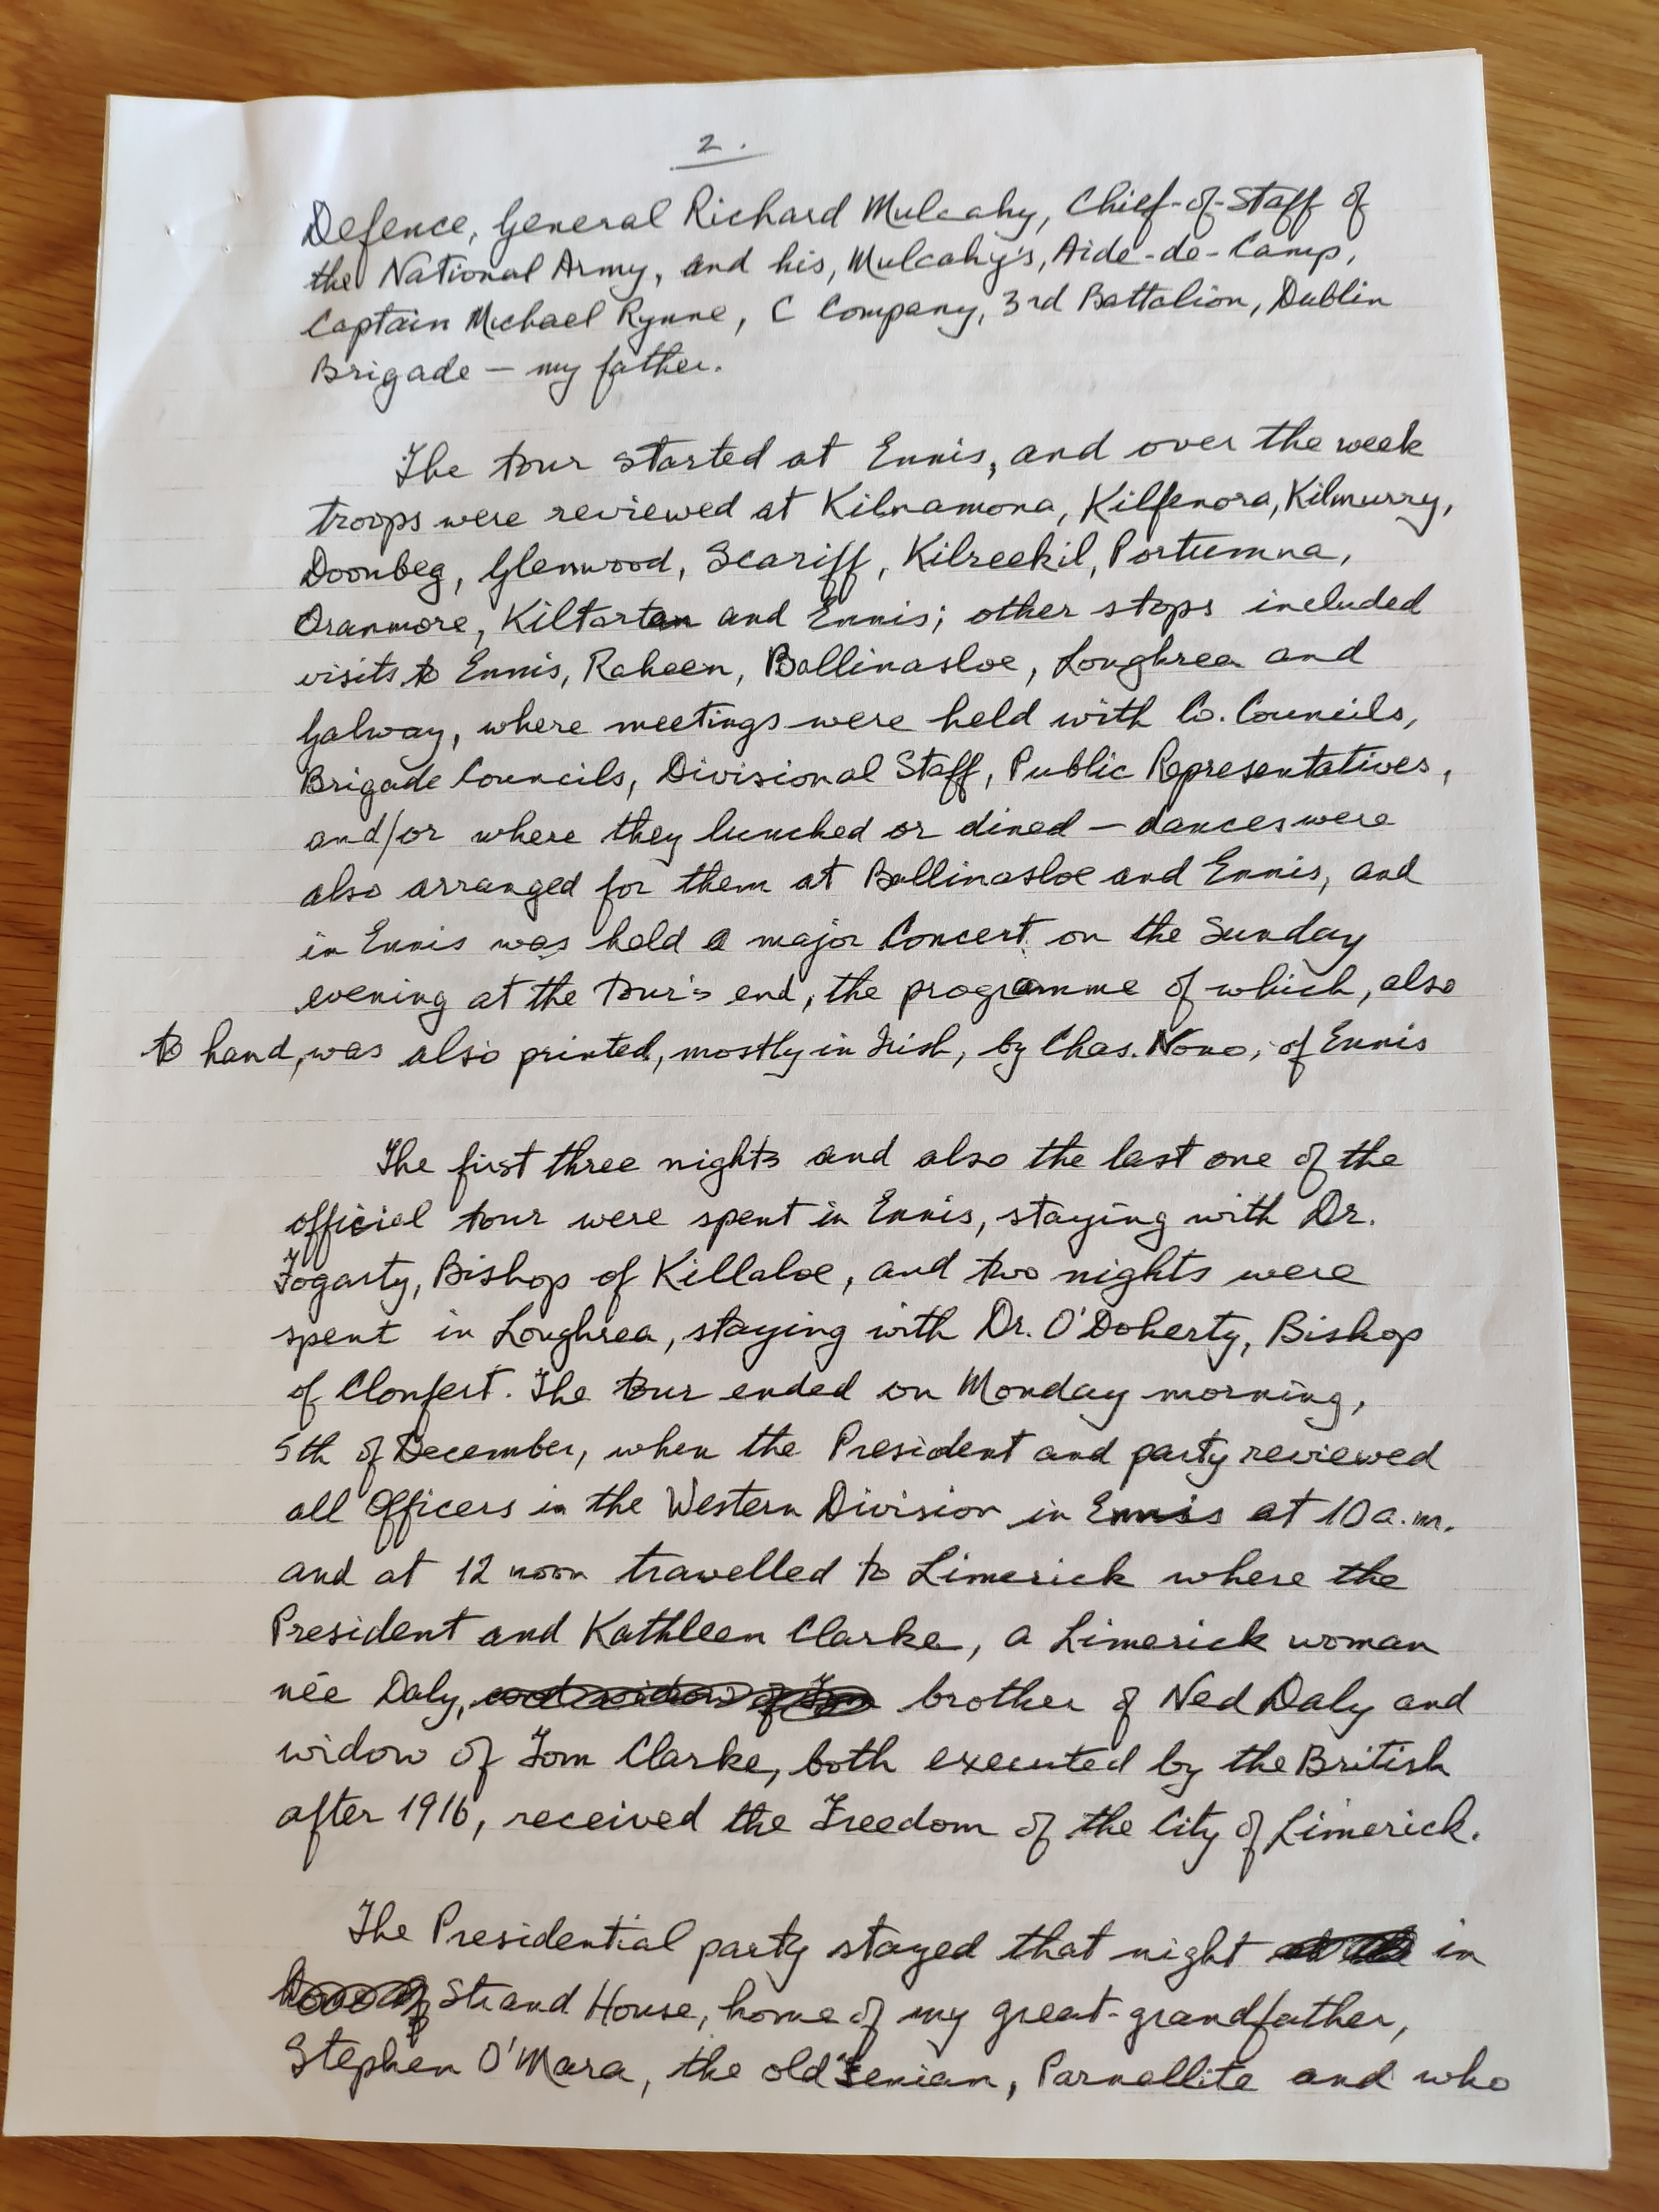 2.
Defence, General Richard Mulcahy, Chief-of-Staff of
the National Army, and his, Mulcahy's, Aide-de-Camp,
Captain Michael Rynne, C Company, 3rd Battalion, Dublin
Brigade – my father.
The tour started at Ennis, and over the week
troops were reviewed at Kilnamona, Kilfenora, Kilmurry,
Doonbeg, Glenwood, Scariff, Kilreekil, Portumna,
Oranmore, Kiltartan and Ennis; other stops included
visits to Ennis, Raheen, Ballinasloe, Loughrea and
Galway, where meetings were held with Co. Councils,
Brigade Councils, Divisional Staff, Public Representatives,
and/or where they lunched or dined – dances were
also arranged for them at Ballinasloe and Ennis, and
in Ennis was held a major Concert on the Sunday
evening at the tour's end, the programme of which, also
to hand, was also printed, mostly in Irish, by Chas. Nono, of Ennis
The first three nights and also the last one of the
official tour were spent in Ennis, staying with Dr.
Fogarty, Bishop of Killaloe, and two nights were
spent in Loughrea, staying with Dr. O'Doherty, Bishop
of Clonfert. The tour ended on Monday morning,
5th of December, when the President and party reviewed
all Officers in the Western Division in Ennis at 10 a.m.
and at 12 noon travelled to Limerick where the
President and Kathleen Clarke, a Limerick woman
née Daly, brother of Ned Daly and
widow of Tom Clarke, both executed by the British
after 1916, received the Freedom of the City of Limerick.
The Presidential party stayed that night in
Strand House, home of my great-grandfather,
Stephen O'Mara, the old Fenian, Parnellite and who